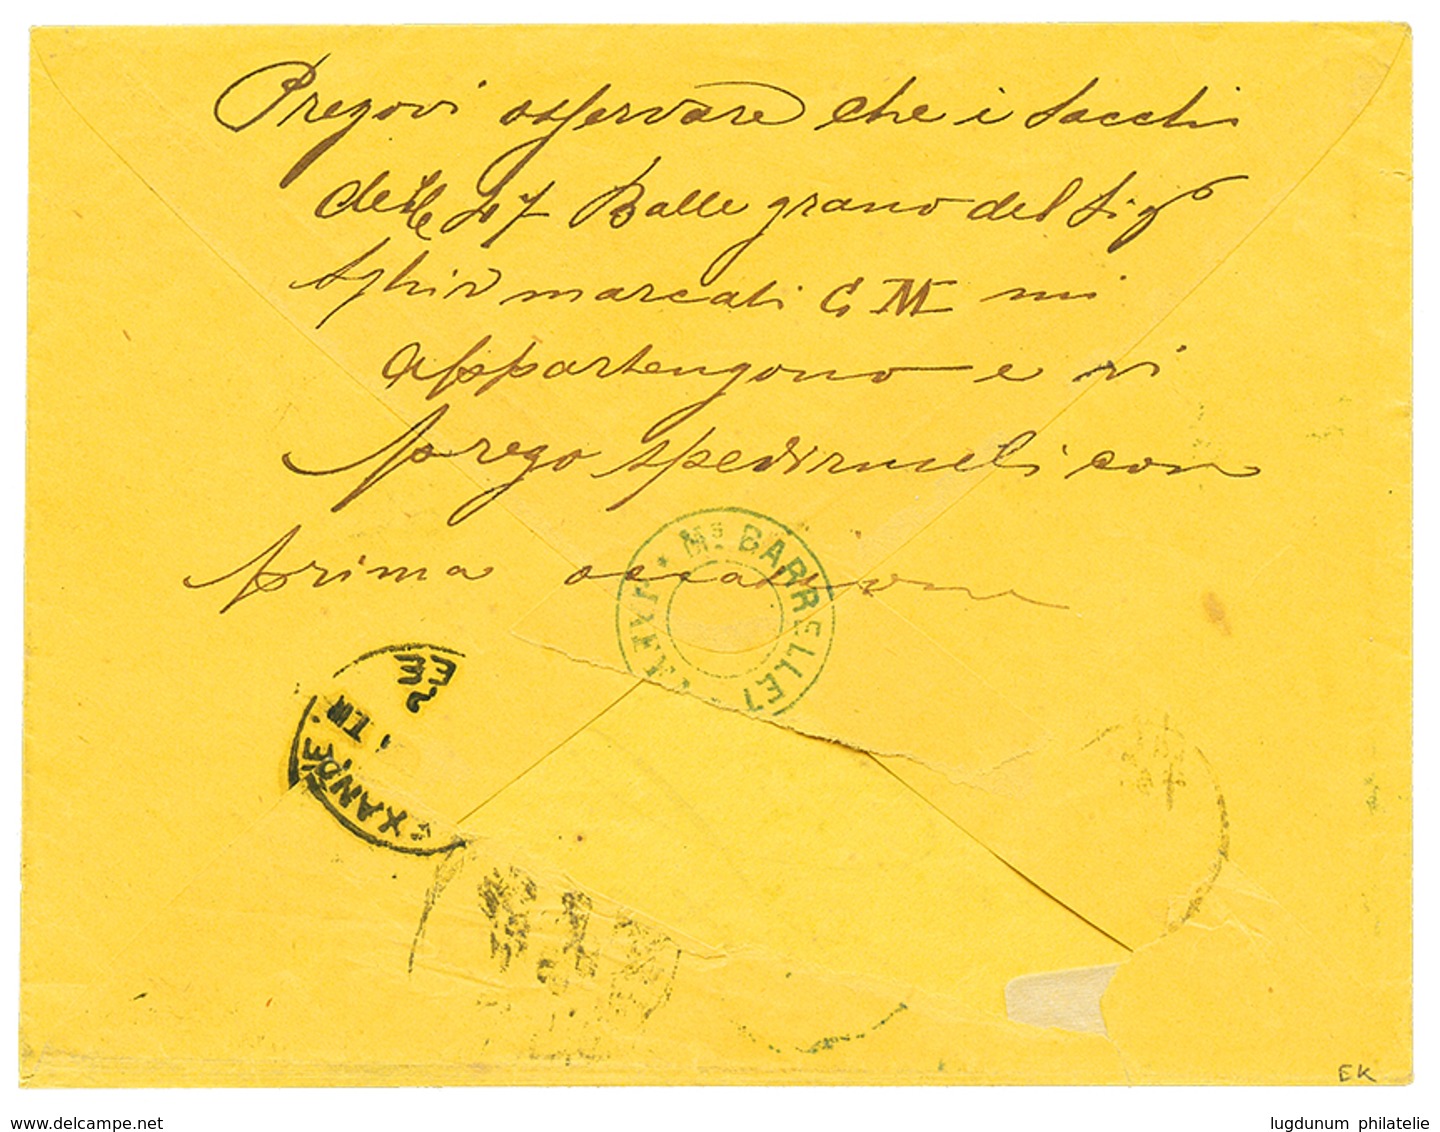 Pregovi osservare che i sacchi
delle 47 Balle grano del Sigr
marcati G M mi
appartengono e vi
prego spedirmeli con
prima occasione
Ms BARRELLET
EXANDE
EK
www.delcampe.net
lugdunum philatelie